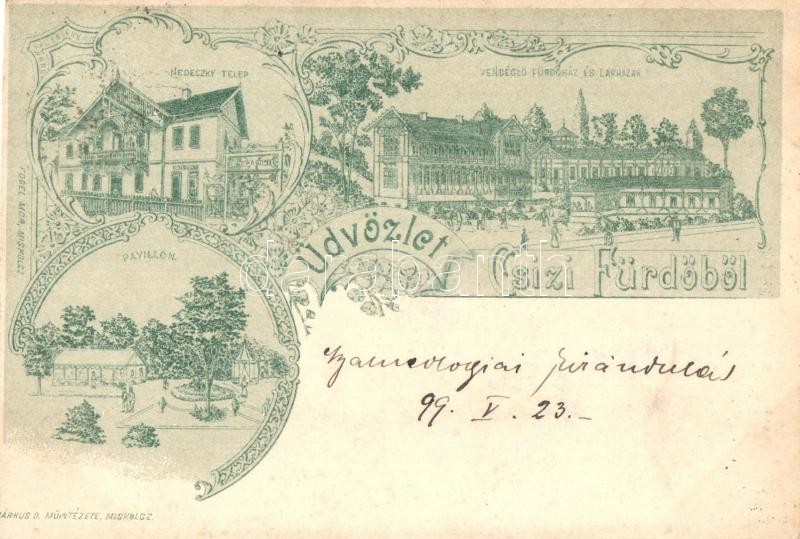 NEDECZKY TELEP
VENDÉGLŐ FÜRDŐHÁZ ÉS LAKHÁZAK
FOGEL MÓR, MISKOLCZ
PAVILLON.
Üdvözlet
Csizi Fürdőből
darabanth
kirándulás
99. V. 23.-
MÁRKUS D. MŰINTÉZETE, MISKOLCZ.